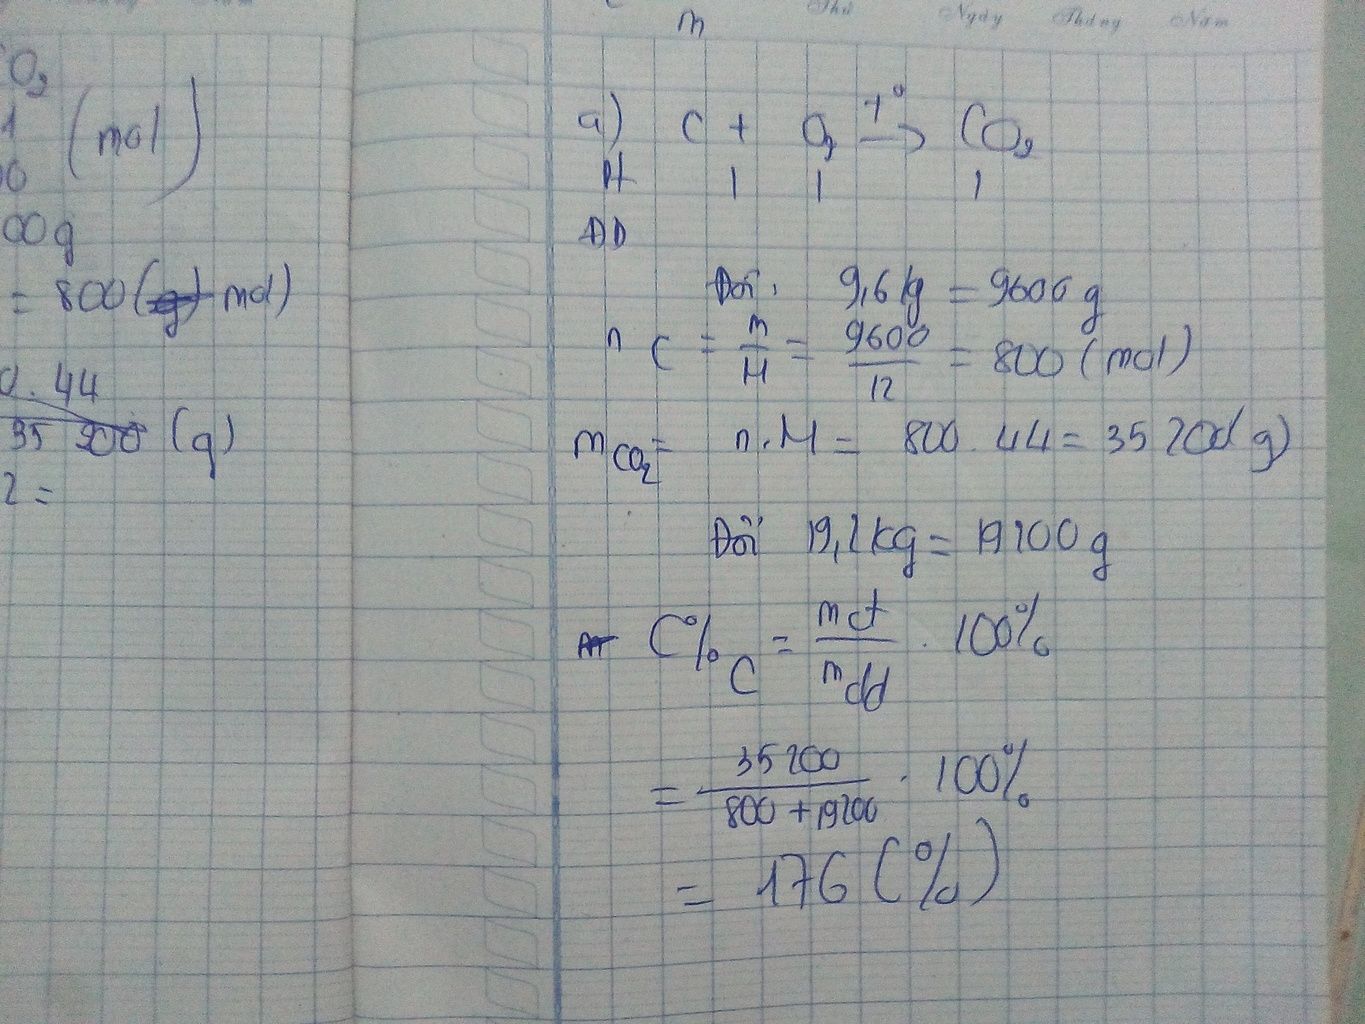 O₂
1 (mol)
00g
= 800 (g) mol)
. 44
35 200 (g)
2 =
Thứ Ngày Tháng Năm
m
a) C + O₂ —t°→ CO₂
PT 1 1 1
ĐB
Đổi. 9,6 kg = 9600 g
n C = m/M = 9600/12 = 800 (mol)
mCO₂ = n.M = 800 . 44 = 35 200( g)
Đổi 19,2 kg = 19200 g
C%C = mct/mdd . 100%
= 35 200/800 + 19200 . 100%
= 176 (%)